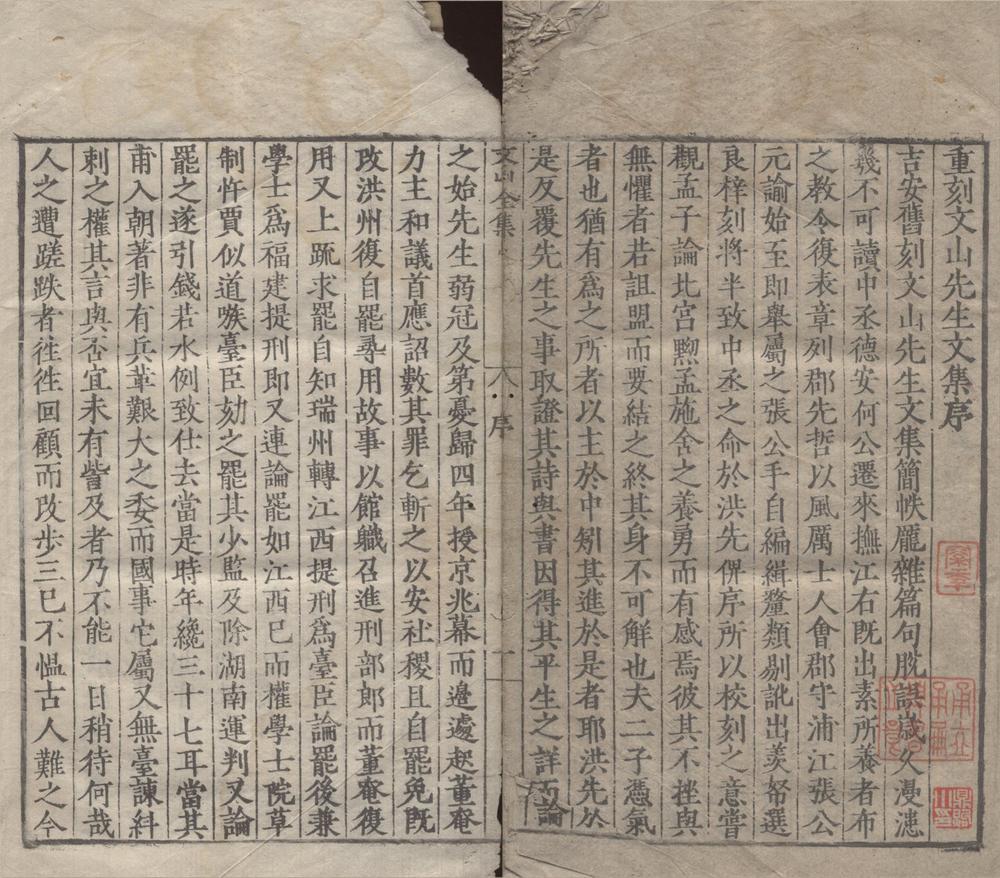 重刻文山先生文集序
吉安舊刻文山先生文集簡帙龐雜篇句脫誤歲久漫漶
幾不可讀中丞德安何公遷來撫江右既出素所養者布
之教令復表章列郡先哲以風厲士人會郡守浦江張公
元諭始至即舉屬之張公手自編緝釐類剔訛出羨帑選
良梓刻將半致中丞之命於洪先俾序所以校刻之意嘗
觀孟子論北宮黝孟施舍之養勇而有感焉彼其不挫與
無懼者若詛盟而要結之終其身不可解也夫二子憑氣
者也猶有為之所者以主於中矧其進於是者耶洪先於
是反覆先生之事取證其詩與書因得其平生之詳而論
文山全集
序
一
之始先生弱冠及第憂歸四年授京兆幕而邊遽起董奄
力主和議首應詔數其罪乞斬之以安社稷且自罷免既
改洪州復自罷尋用故事以館職召進刑部郎而董奄復
用又上䟽求罷自知瑞州轉江西提刑為臺臣論罷後兼
學士為福建提刑即又連論罷如江西已而權學士院草
制忤賈似道嗾臺臣劾之罷其少監及除湖南運判又論
罷之遂引錢若水例致仕去當是時年纔三十七耳當其
甫入朝著非有兵革艱大之委而國事它屬又無臺諫糾
刺之權其言與否宜未有訾及者乃不能一日稍待何哉
人之遭蹉跌者徃徃回顧而改步三已不慍古人難之今